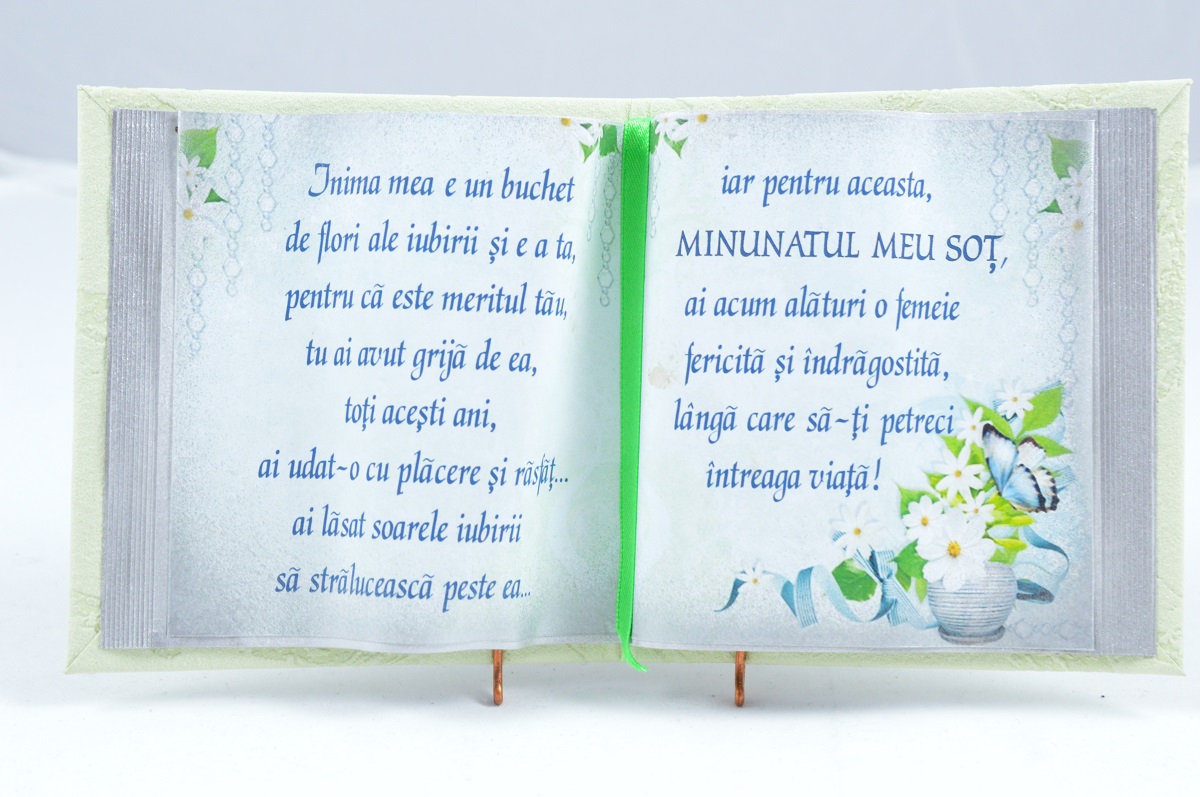 Inima mea e un buchet
de flori ale iubirii și e a ta,
pentru cã este meritul tãu,
tu ai avut grijã de ea,
toți acești ani,
ai udat-o cu plãcere și rãsfãț...
ai lãsat soarele iubirii
sã strãluceascã peste ea...
iar pentru aceasta,
MINUNATUL MEU SOȚ,
ai acum alãturi o femeie
fericitã și îndrãgostitã,
lângã care sã-ți petreci
întreaga viațã!